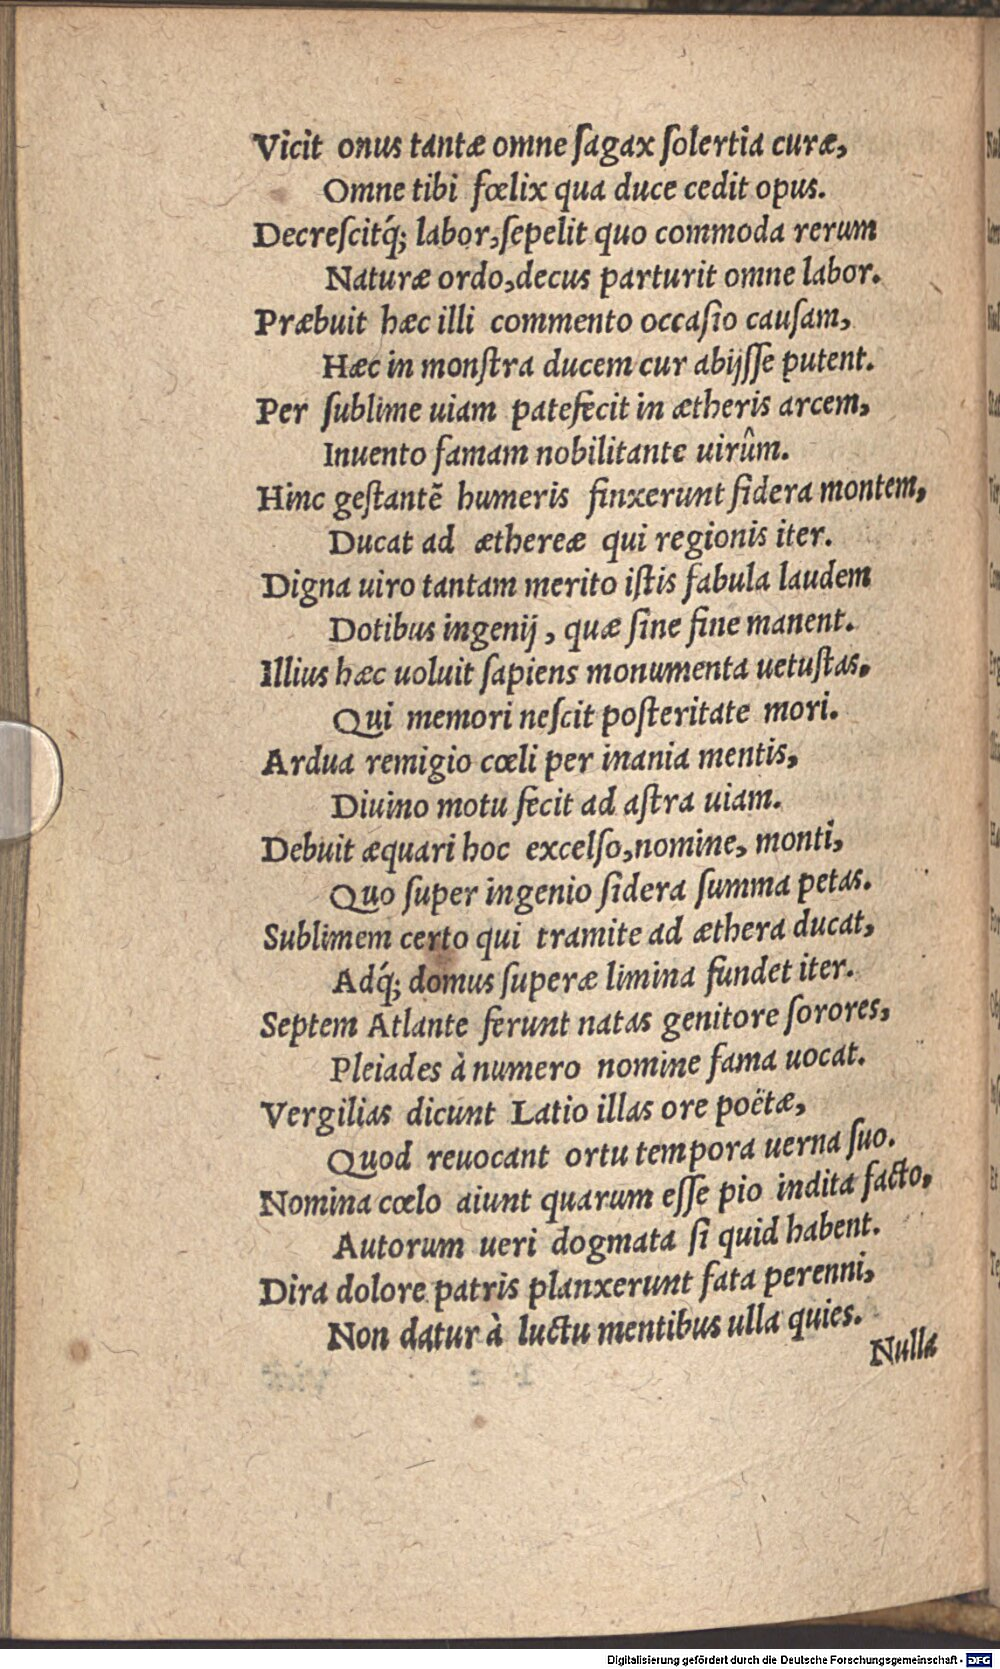 Vicit onus tantæ omne ſagax ſolertia curæ,
Omne tibi fœlix qua duce cedit opus.
Decreſcitq́; labor, ſepelit quo commoda rerum
Naturæ ordo, decus parturit omne labor.
Præbuit hæc illi commento occaſio cauſam,
Hæc in monſtra ducem cur abijſſe putent.
Per ſublime uiam patefecit in ætheris arcem,
Inuento famam nobilitante uirûm.
Hinc geſtantē humeris finxerunt ſidera montem,
Ducat ad æthereæ qui regionis iter.
Digna uiro tantam merito iſtis fabula laudem
Dotibus ingenij, quæ ſine fine manent.
Illius hæc uoluit ſapiens monumenta uetuſtas,
Qui memori neſcit poſteritate mori.
Ardua remigio cœli per inania mentis,
Diuino motu fecit ad aſtra uiam.
Debuit æquari hoc excelſo, nomine, monti,
Quo ſuper ingenio ſidera ſumma petas.
Sublimem certo qui tramite ad æthera ducat,
Adq́; domus ſuperæ limina fundet iter.
Septem Atlante ferunt natas genitore ſorores,
Pleiades à numero nomine fama uocat.
Vergilias dicunt Latio illas ore poëtæ,
Quod reuocant ortu tempora uerna ſuo.
Nomina cœlo aiunt quarum eſſe pio indita facto,
Autorum ueri dogmata ſi quid habent.
Dira dolore patris planxerunt fata perenni,
Non datur à luctu mentibus ulla quies.
Nulla
Digitalisierung gefördert durch die Deutsche Forschungsgemeinschaft - DFG